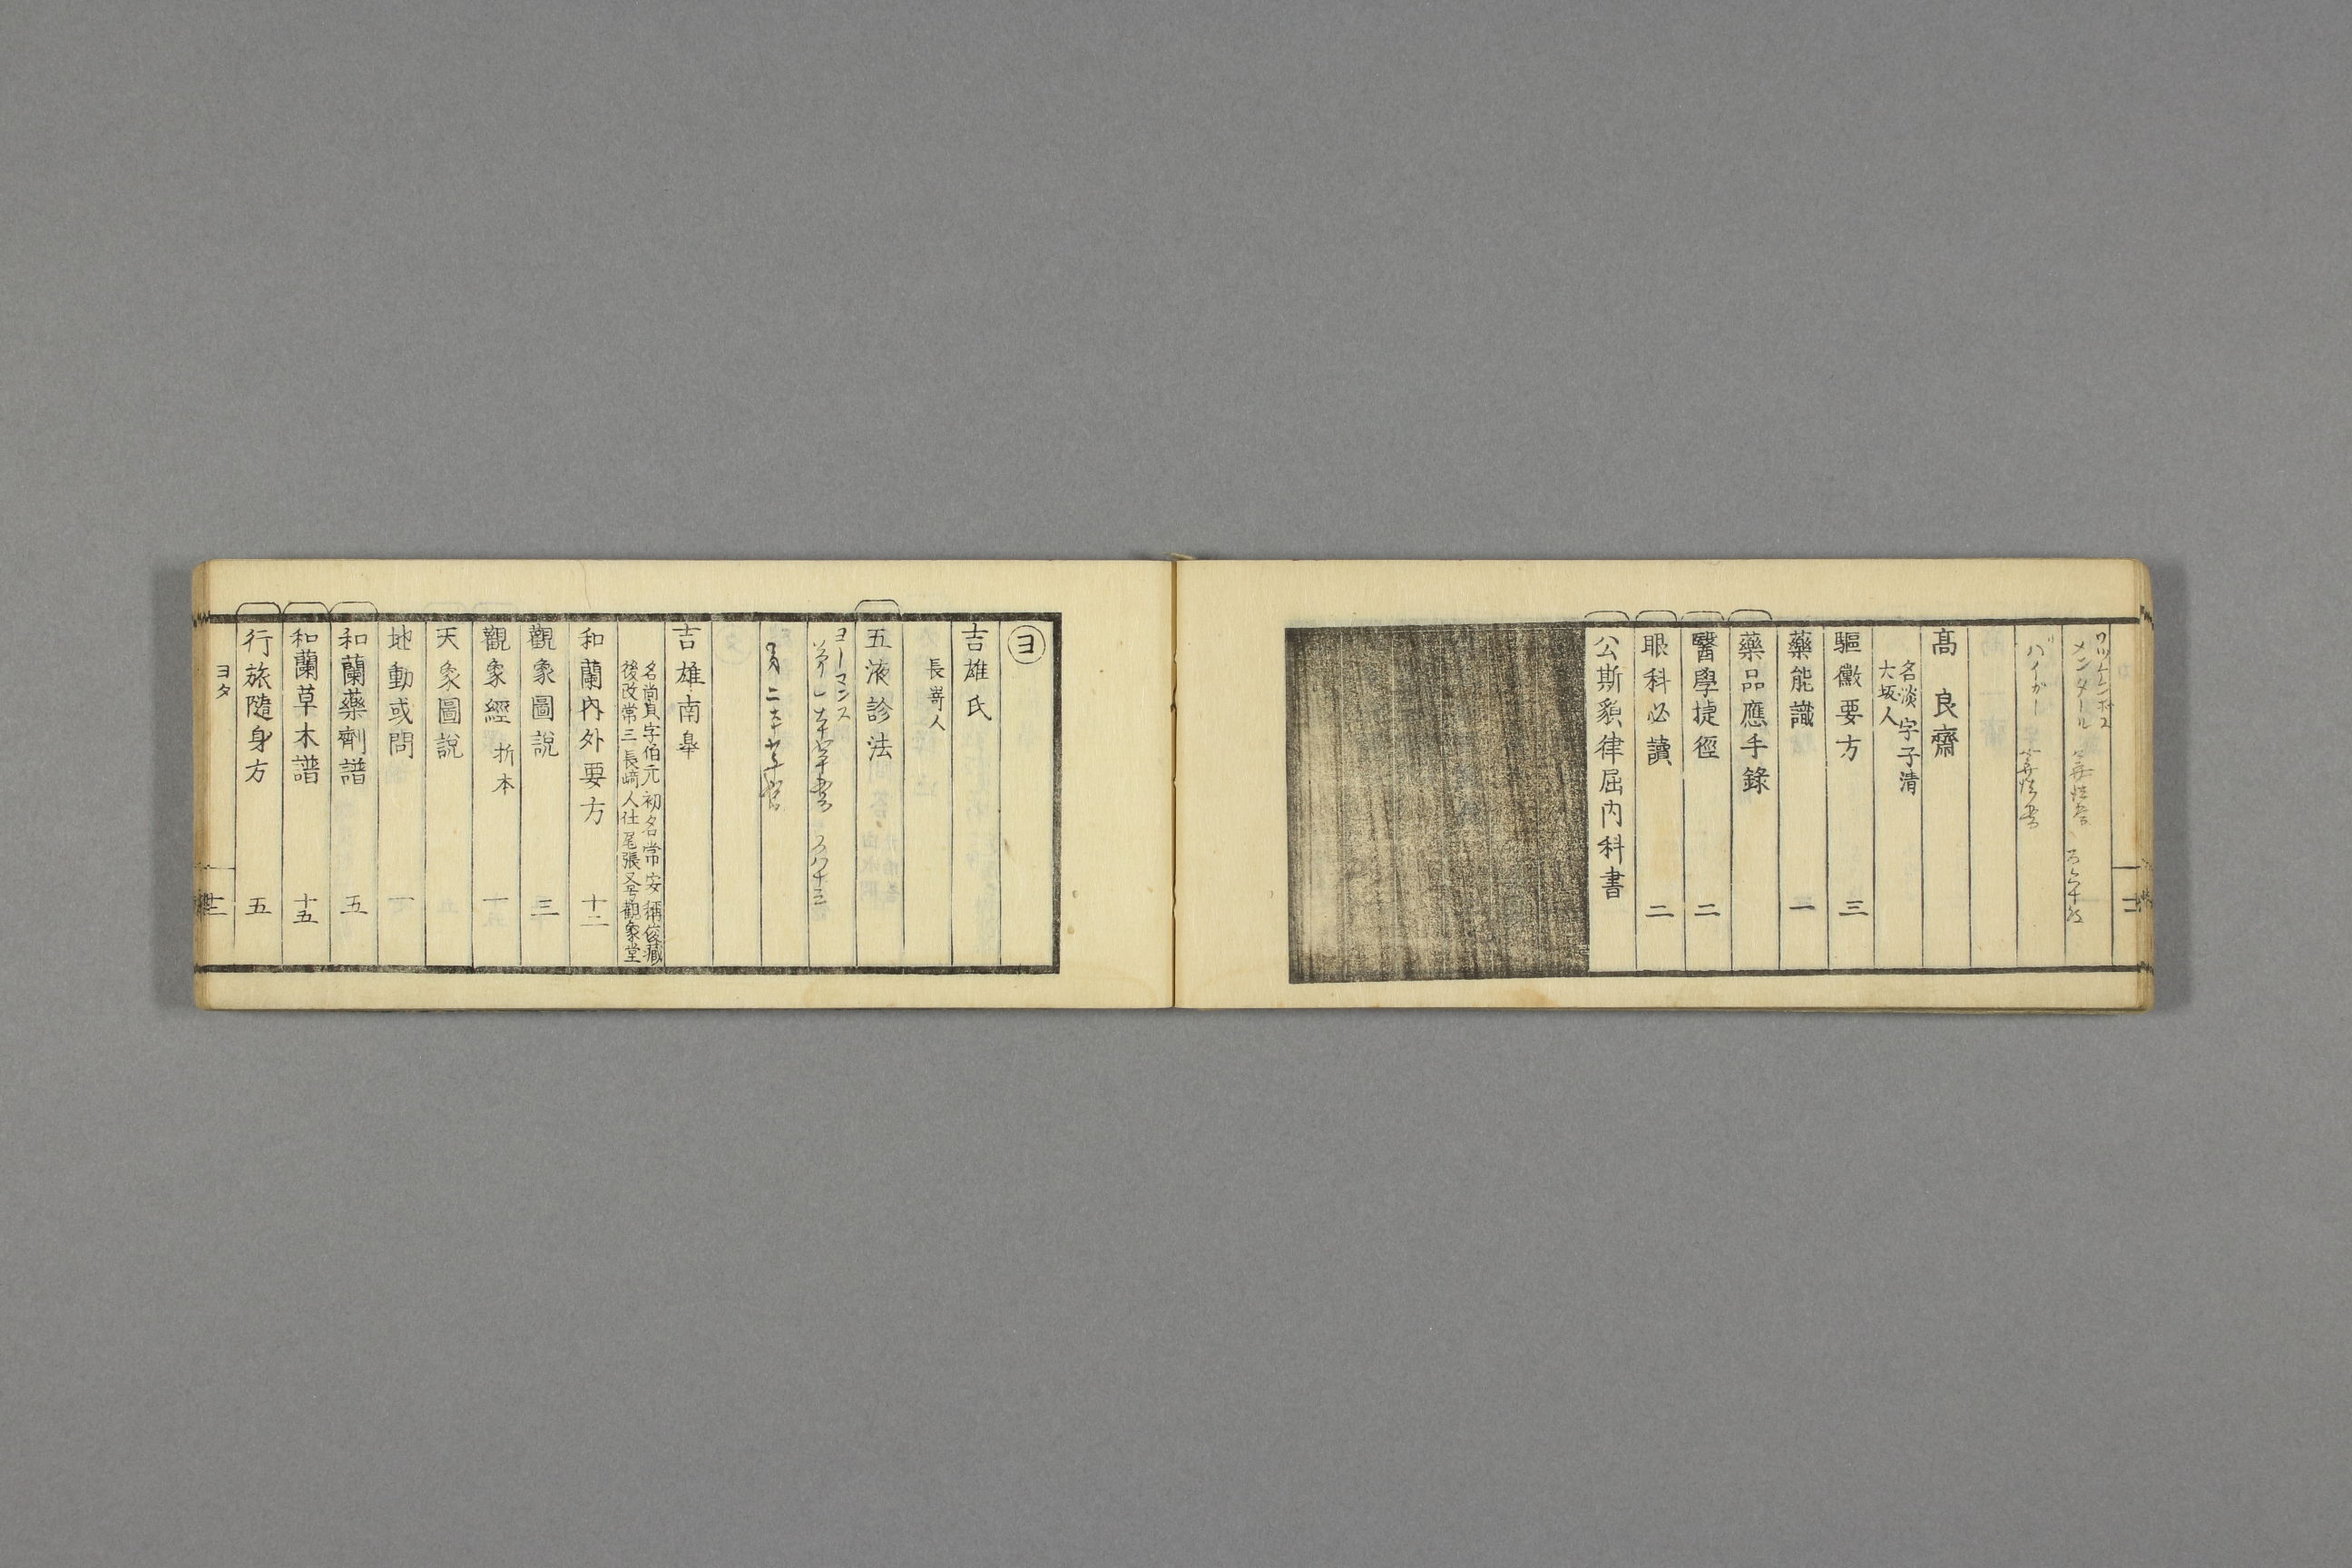 メンタール
バイカー
髙良齋
名淡字子清
大坂人
驅黴要方 三
藥能識 一
藥品應手錄
醫學捷徑 二
眼科必讀 二
公斯貌律屈内科書
ヨ
吉雄氏
長嵜人
五液診法
ヨーマンス
吉雄南皐
名尚貞字伯元初名常安稱俊藏
後改常三長﨑人仕尾張又号觀象堂
和蘭内外要方 十二
觀象圖說 三
觀象經 折本 一
天象圖說
地動或問 一
和蘭藥劑譜 五
和蘭草木譜 十五
行旅隨身方 五
ヨタ